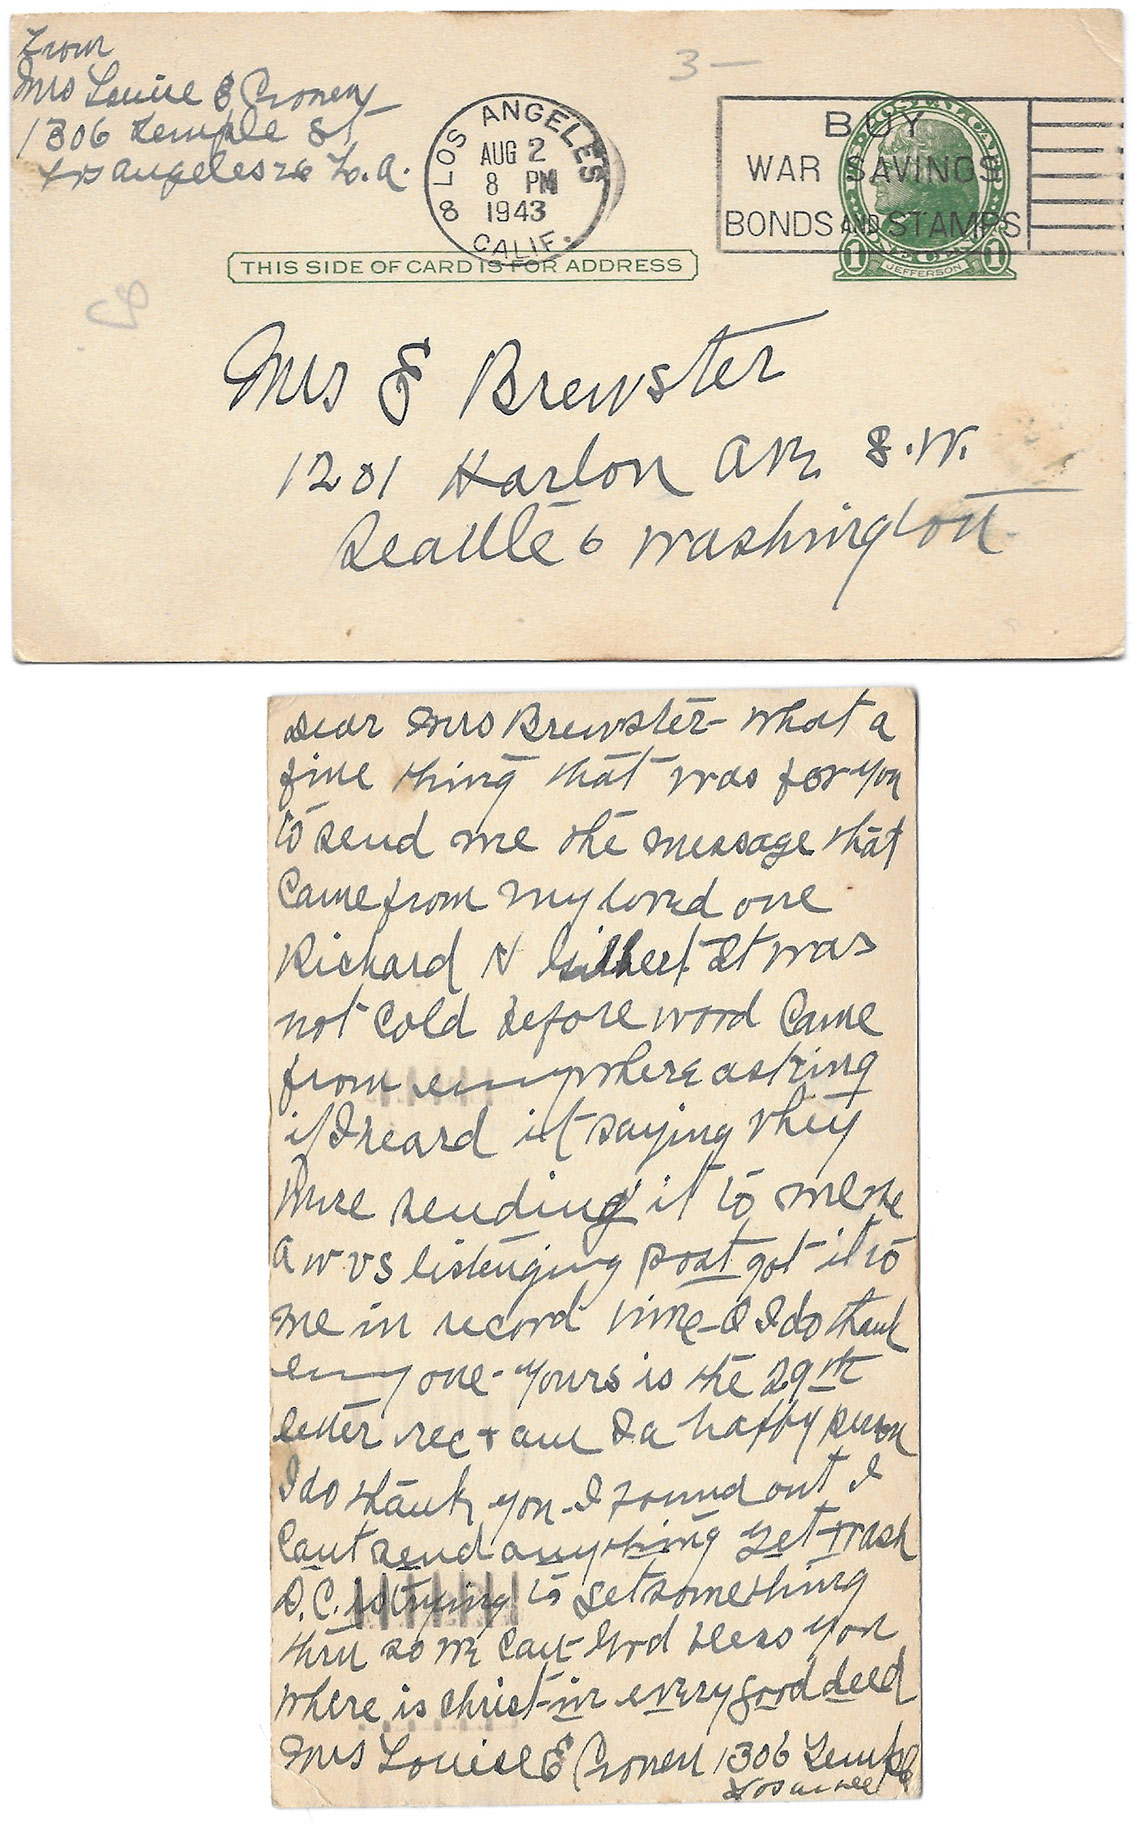 From
Mrs Louise E Cronen
1306 Temple St
Los Angeles 26 L.A.
3 —
8 LOS ANGELES
AUG 2
8 PM
1943
CALIF.
BUY
WAR SAVINGS
BONDS AND STAMPS
1 JEFFERSON 1
THIS SIDE OF CARD IS FOR ADDRESS
Mrs E Brewster
1201 Harlon Ave S.W.
Seattle 6 Washington
Dear Mrs Brewster - What a
fine thing that was for you
to send me the message that
Came from my loved one
Richard N Gilbert It was
not Cold before word Came
from everywhere asking
if I heard it saying they
Were sending it to me the
A W V S listenging post got it to
me in record time - & I do thank
every one - Yours is the 29th
letter rec + am I a happy person
I do thank you - I found out I
Cant send anything yet Wash
D.C. is trying to get something
thru so we Can - God bless you
Where is Christ - in every good deed
Mrs Louise E Cronen 1306 Temple